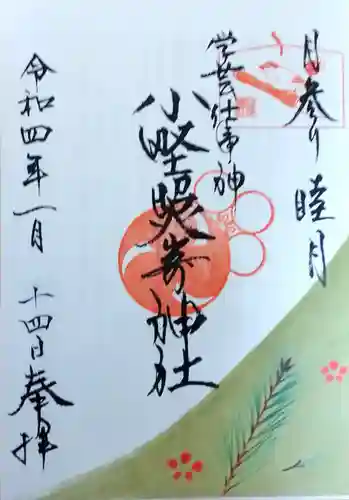 月参り 睦月
学芸仕事神
小野照嵜神社
令和四年一月 十四日 奉拝